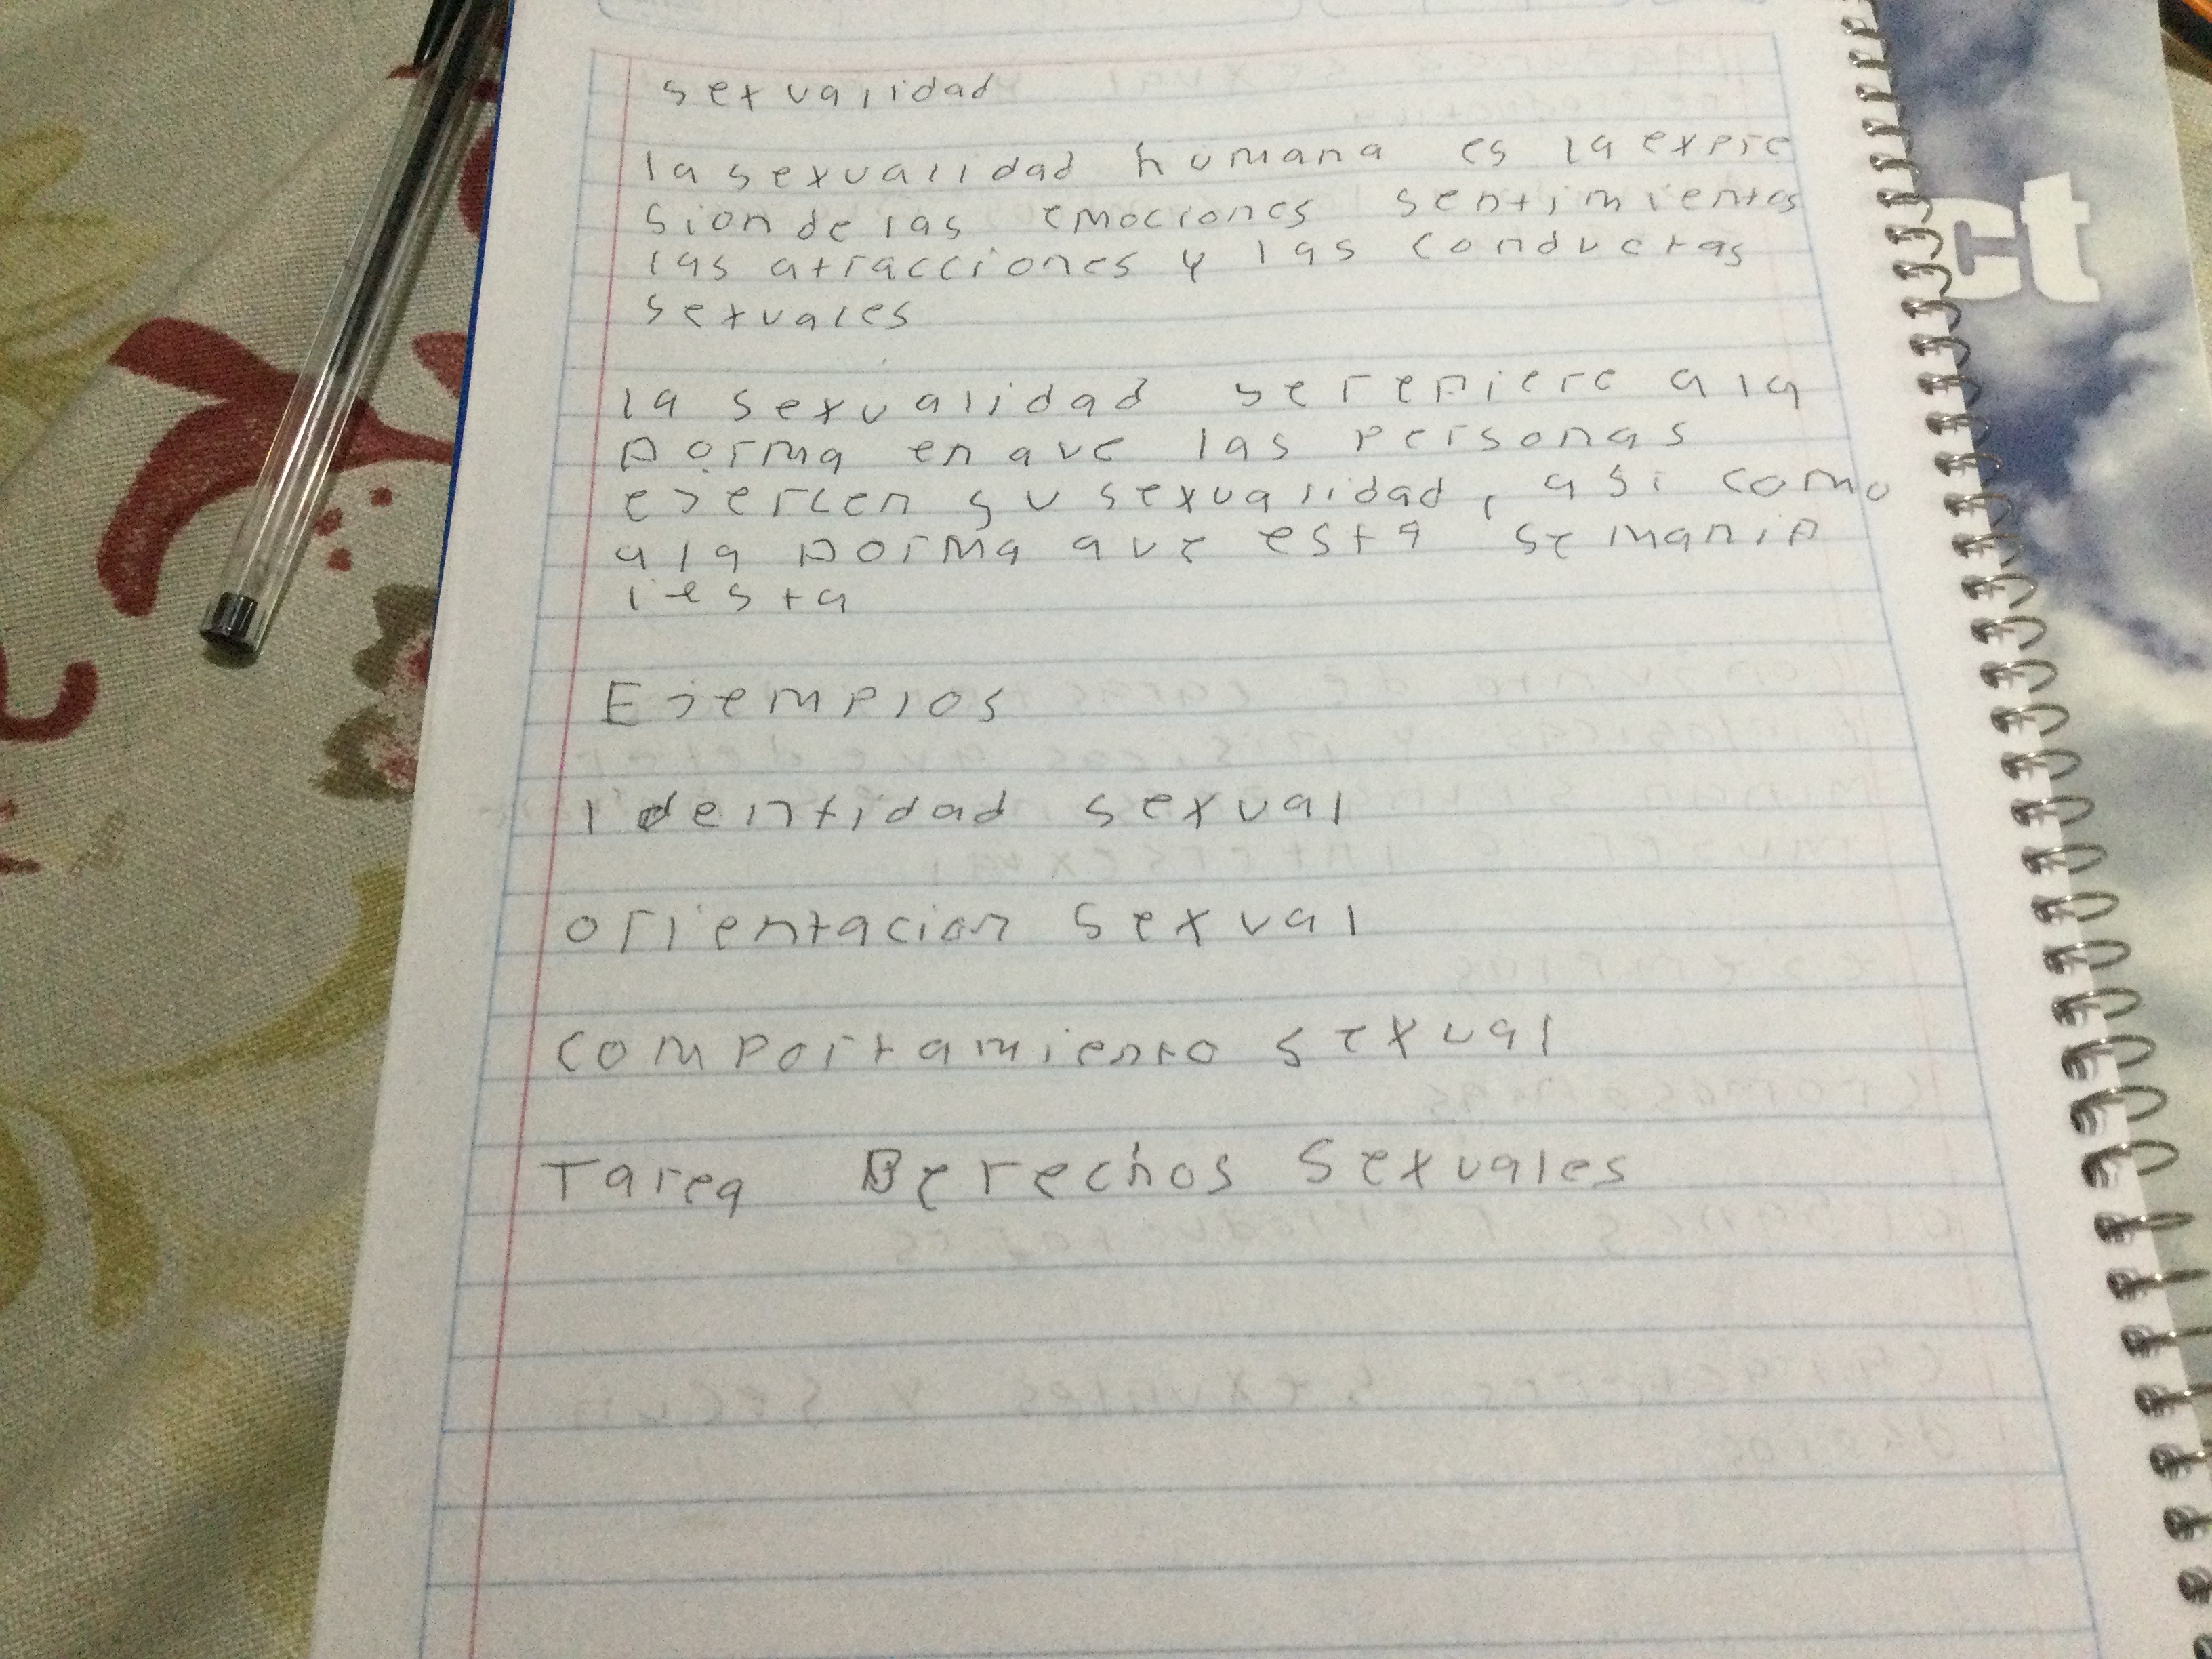 sexualidad
la sexualidad humana es la expre
sion de las emociones sentimientos
las atracciones y las conductas
sexuales
la sexualidad se refiere a la
forma en que las personas
ejercen su sexualidad, asi como
a la forma que esta se manif
iesta
Ejemplos
Identidad sexual
orientacion sexual
comportamiento sexual
Tarea Derechos Sexuales
ct